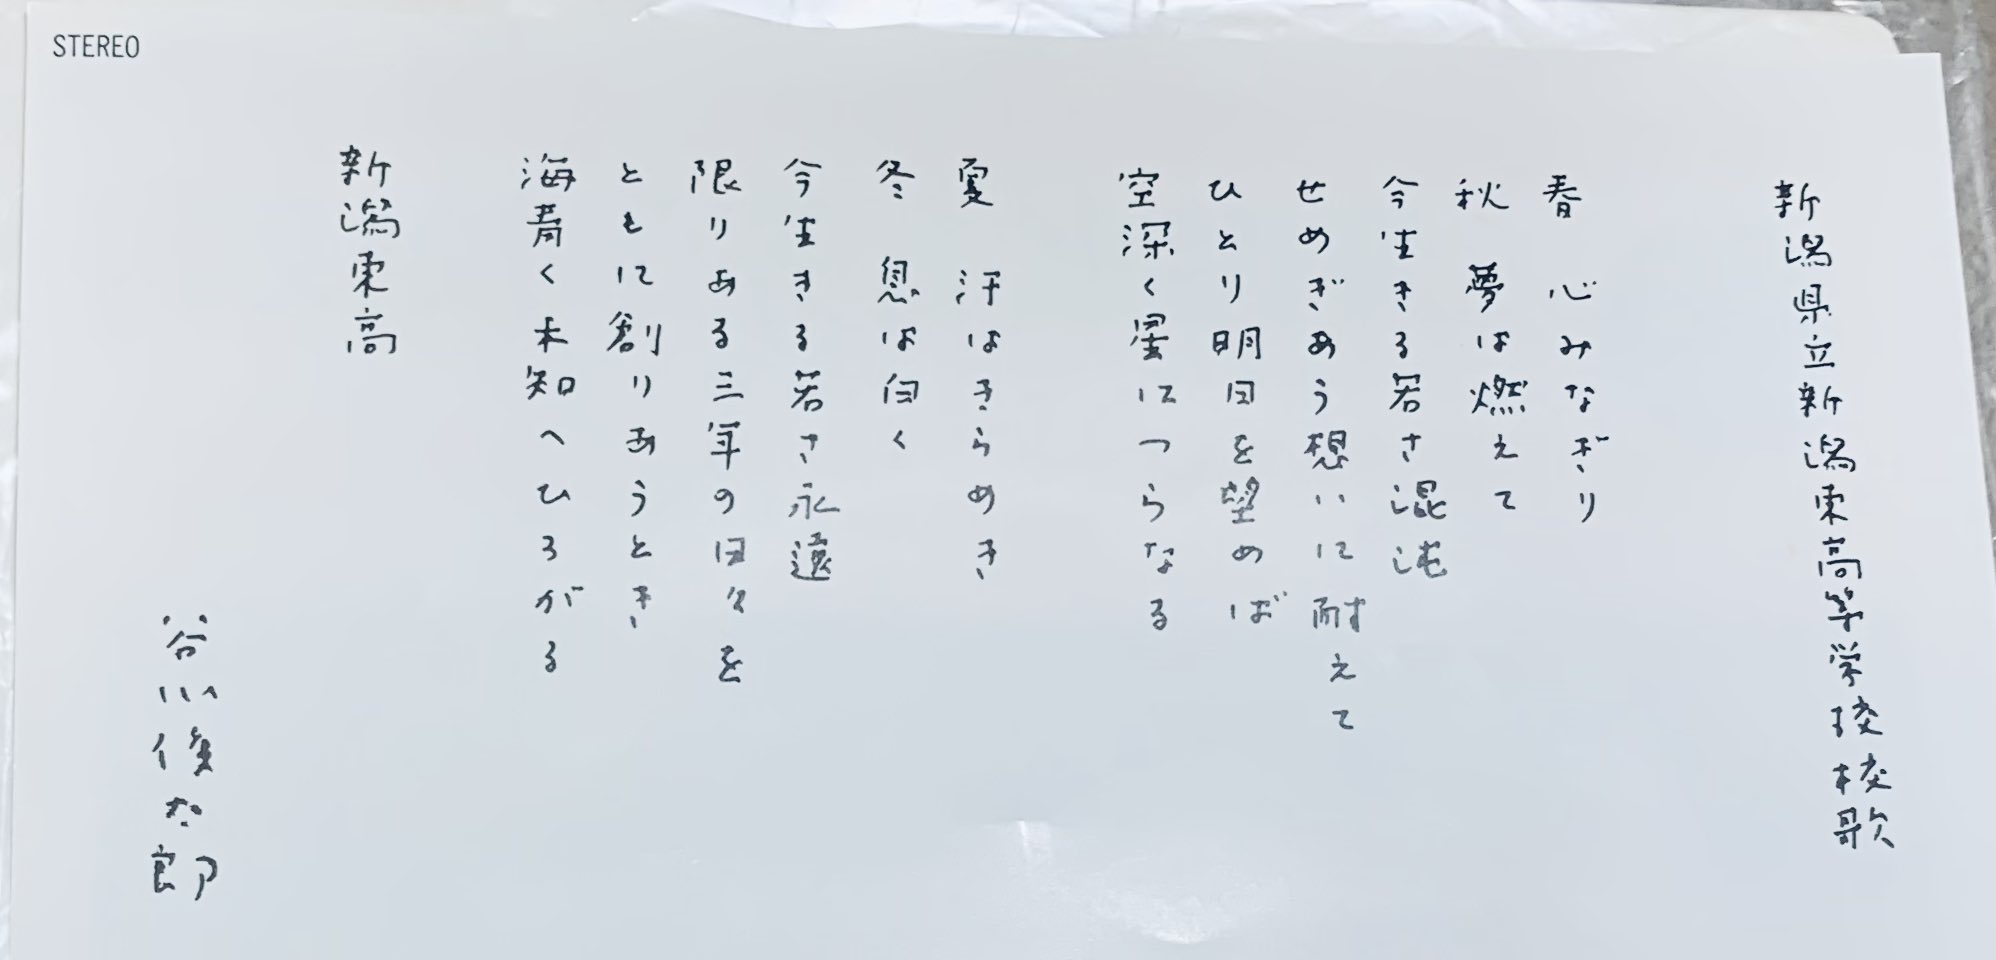 STEREO
新潟県立新潟東高等学校校歌
春　心みなぎり
秋　夢は燃えて
今生きる若さ混沌
せめぎあう想いに耐えて
ひとり明日を望めば
空深く星につらなる
夏　汗はきらめき
冬　息は白く
今生きる若さ永遠
限りある三年の日々を
ともに創りあうとき
海青く未知へひろがる
新潟東高
谷川俊太郎